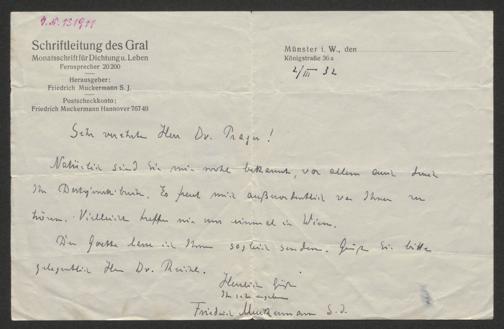 J.N. 131911
Schriftleitung des Gral
Monatsschrift für Dichtung u. Leben
Fernsprecher 20200
Herausgeber:
Friedrich Muckermann S. J.
Postscheckkonto:
Friedrich Muckermann Hannover 76749
Münster i. W., den
Königstraße 36a
2/III 32
Sehr verehrter Herr Dr. Prager!
Natürlich sind Sie mir wohl bekannt, vor allem auch durch
Ihr Buch. Es freut mich außerordentlich von Ihnen zu
hören. Vielleicht treffen wir uns einmal in Wien.
Den Goethe lasse ich Ihnen sogleich senden. Grüßen Sie bitte
gelegentlich Herrn Dr.
Herzliche Grüße
Ihr sehr ergebener
Friedrich Muckermann S. J.